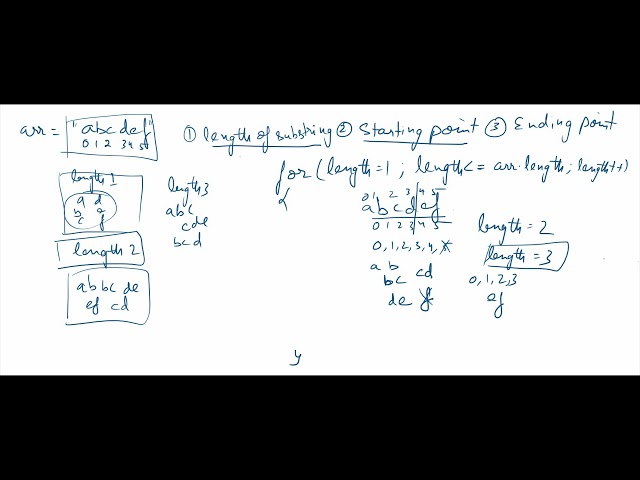 arr = "abc def"
0 1 2 3 4 5
① length of substring ② Starting point ③ Ending point
for (length = 1 ; length <= arr.length ; length++)
{
length 1
a d
b e
c f
length 2
ab bc de
ef cd
length 3
abc
cde
bcd
0 1 2 3 4 5
a b c d e f
0 1 2 3 4 5
0, 1, 2, 3, 4,
ab
bc cd
de
length = 2
length = 3
0, 1, 2, 3
ef
}